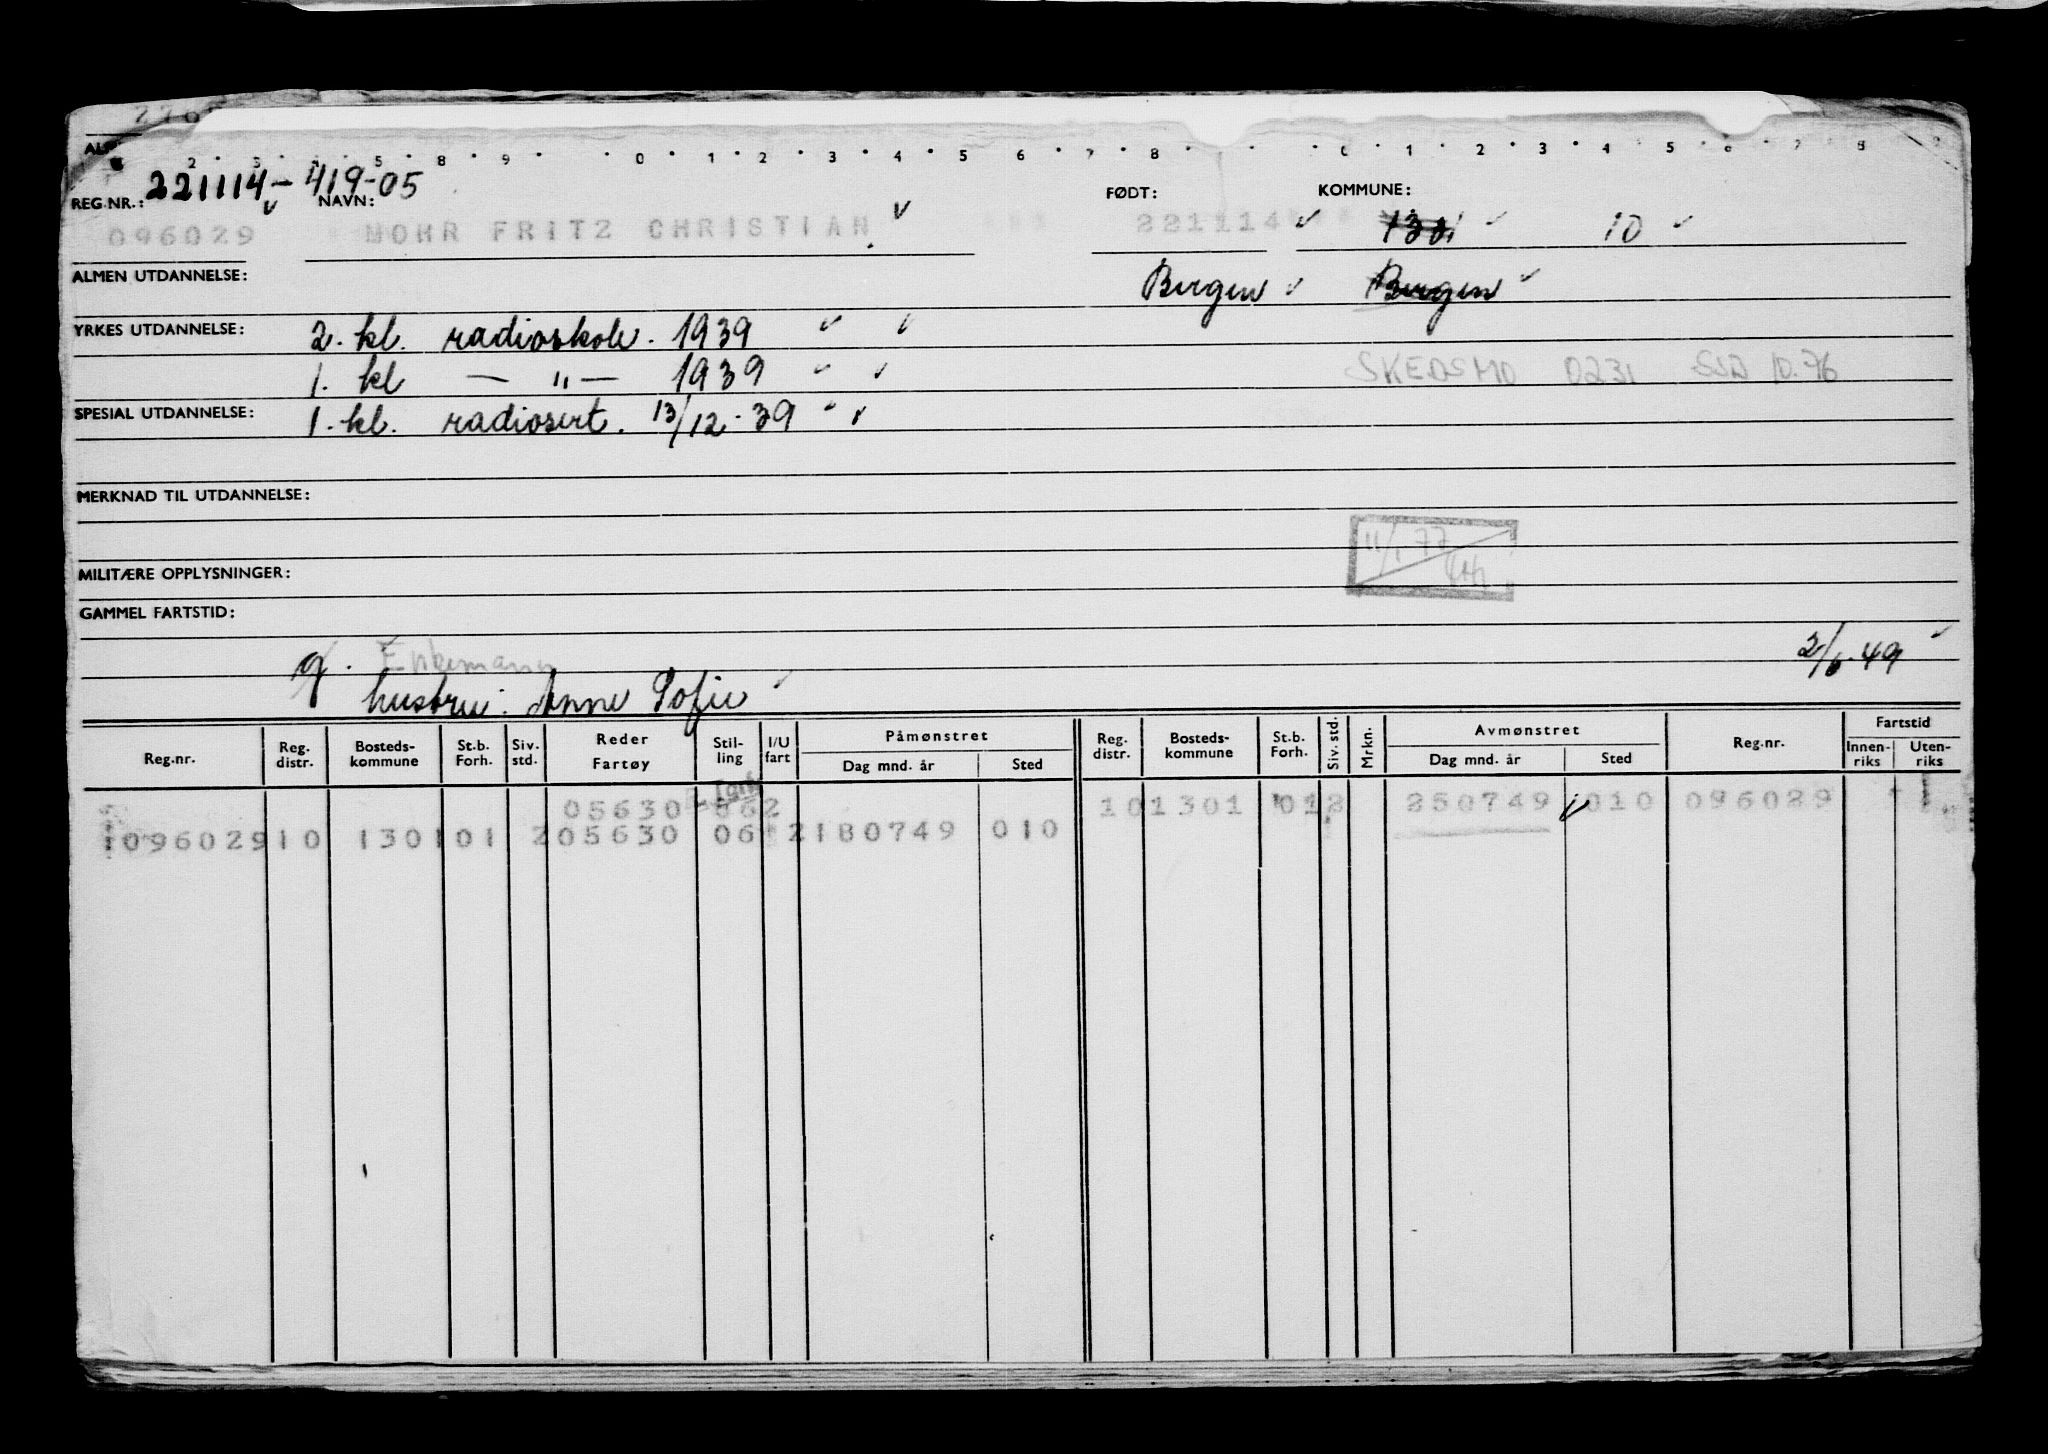 2 3 4 5 8 9 0 1 2 3 4 5 6 7 8 0 1 2 3 4 5 6 7 8
221114-419-05
REG.NR.: NAVN: FØDT: KOMMUNE:
096029 MOHR FRITZ CHRISTIAN 221114 1301 10
ALMEN UTDANNELSE: Bergen Bergen
YRKES UTDANNELSE: 2. kl. radioskole. 1939
1. kl — " — 1939 SKEDSMO 0231 SSD 10.76
SPESIAL UTDANNELSE: 1. kl. radiosert. 13/12-39
MERKNAD TIL UTDANNELSE:
11/1 77
MILITÆRE OPPLYSNINGER:
GAMMEL FARTSTID:
g. Enkemann 2/6-49
hustru: Anne Sofie
Reg.nr. Reg. distr. Bosteds-kommune St.b. Forh. Siv. std. Reder Fartøy Stil-ling I/U fart Påmønstret Dag mnd. år Sted Reg. distr. Bosteds-kommune St.b. Forh. Siv. std. Mrkn. Avmønstret Dag mnd. år Sted Reg.nr. Fartstid Innen-riks Uten-riks
05630 062 10 1301 012 250749 010 096029
096029 10 1301 01 2 05630 06 2 180749 010